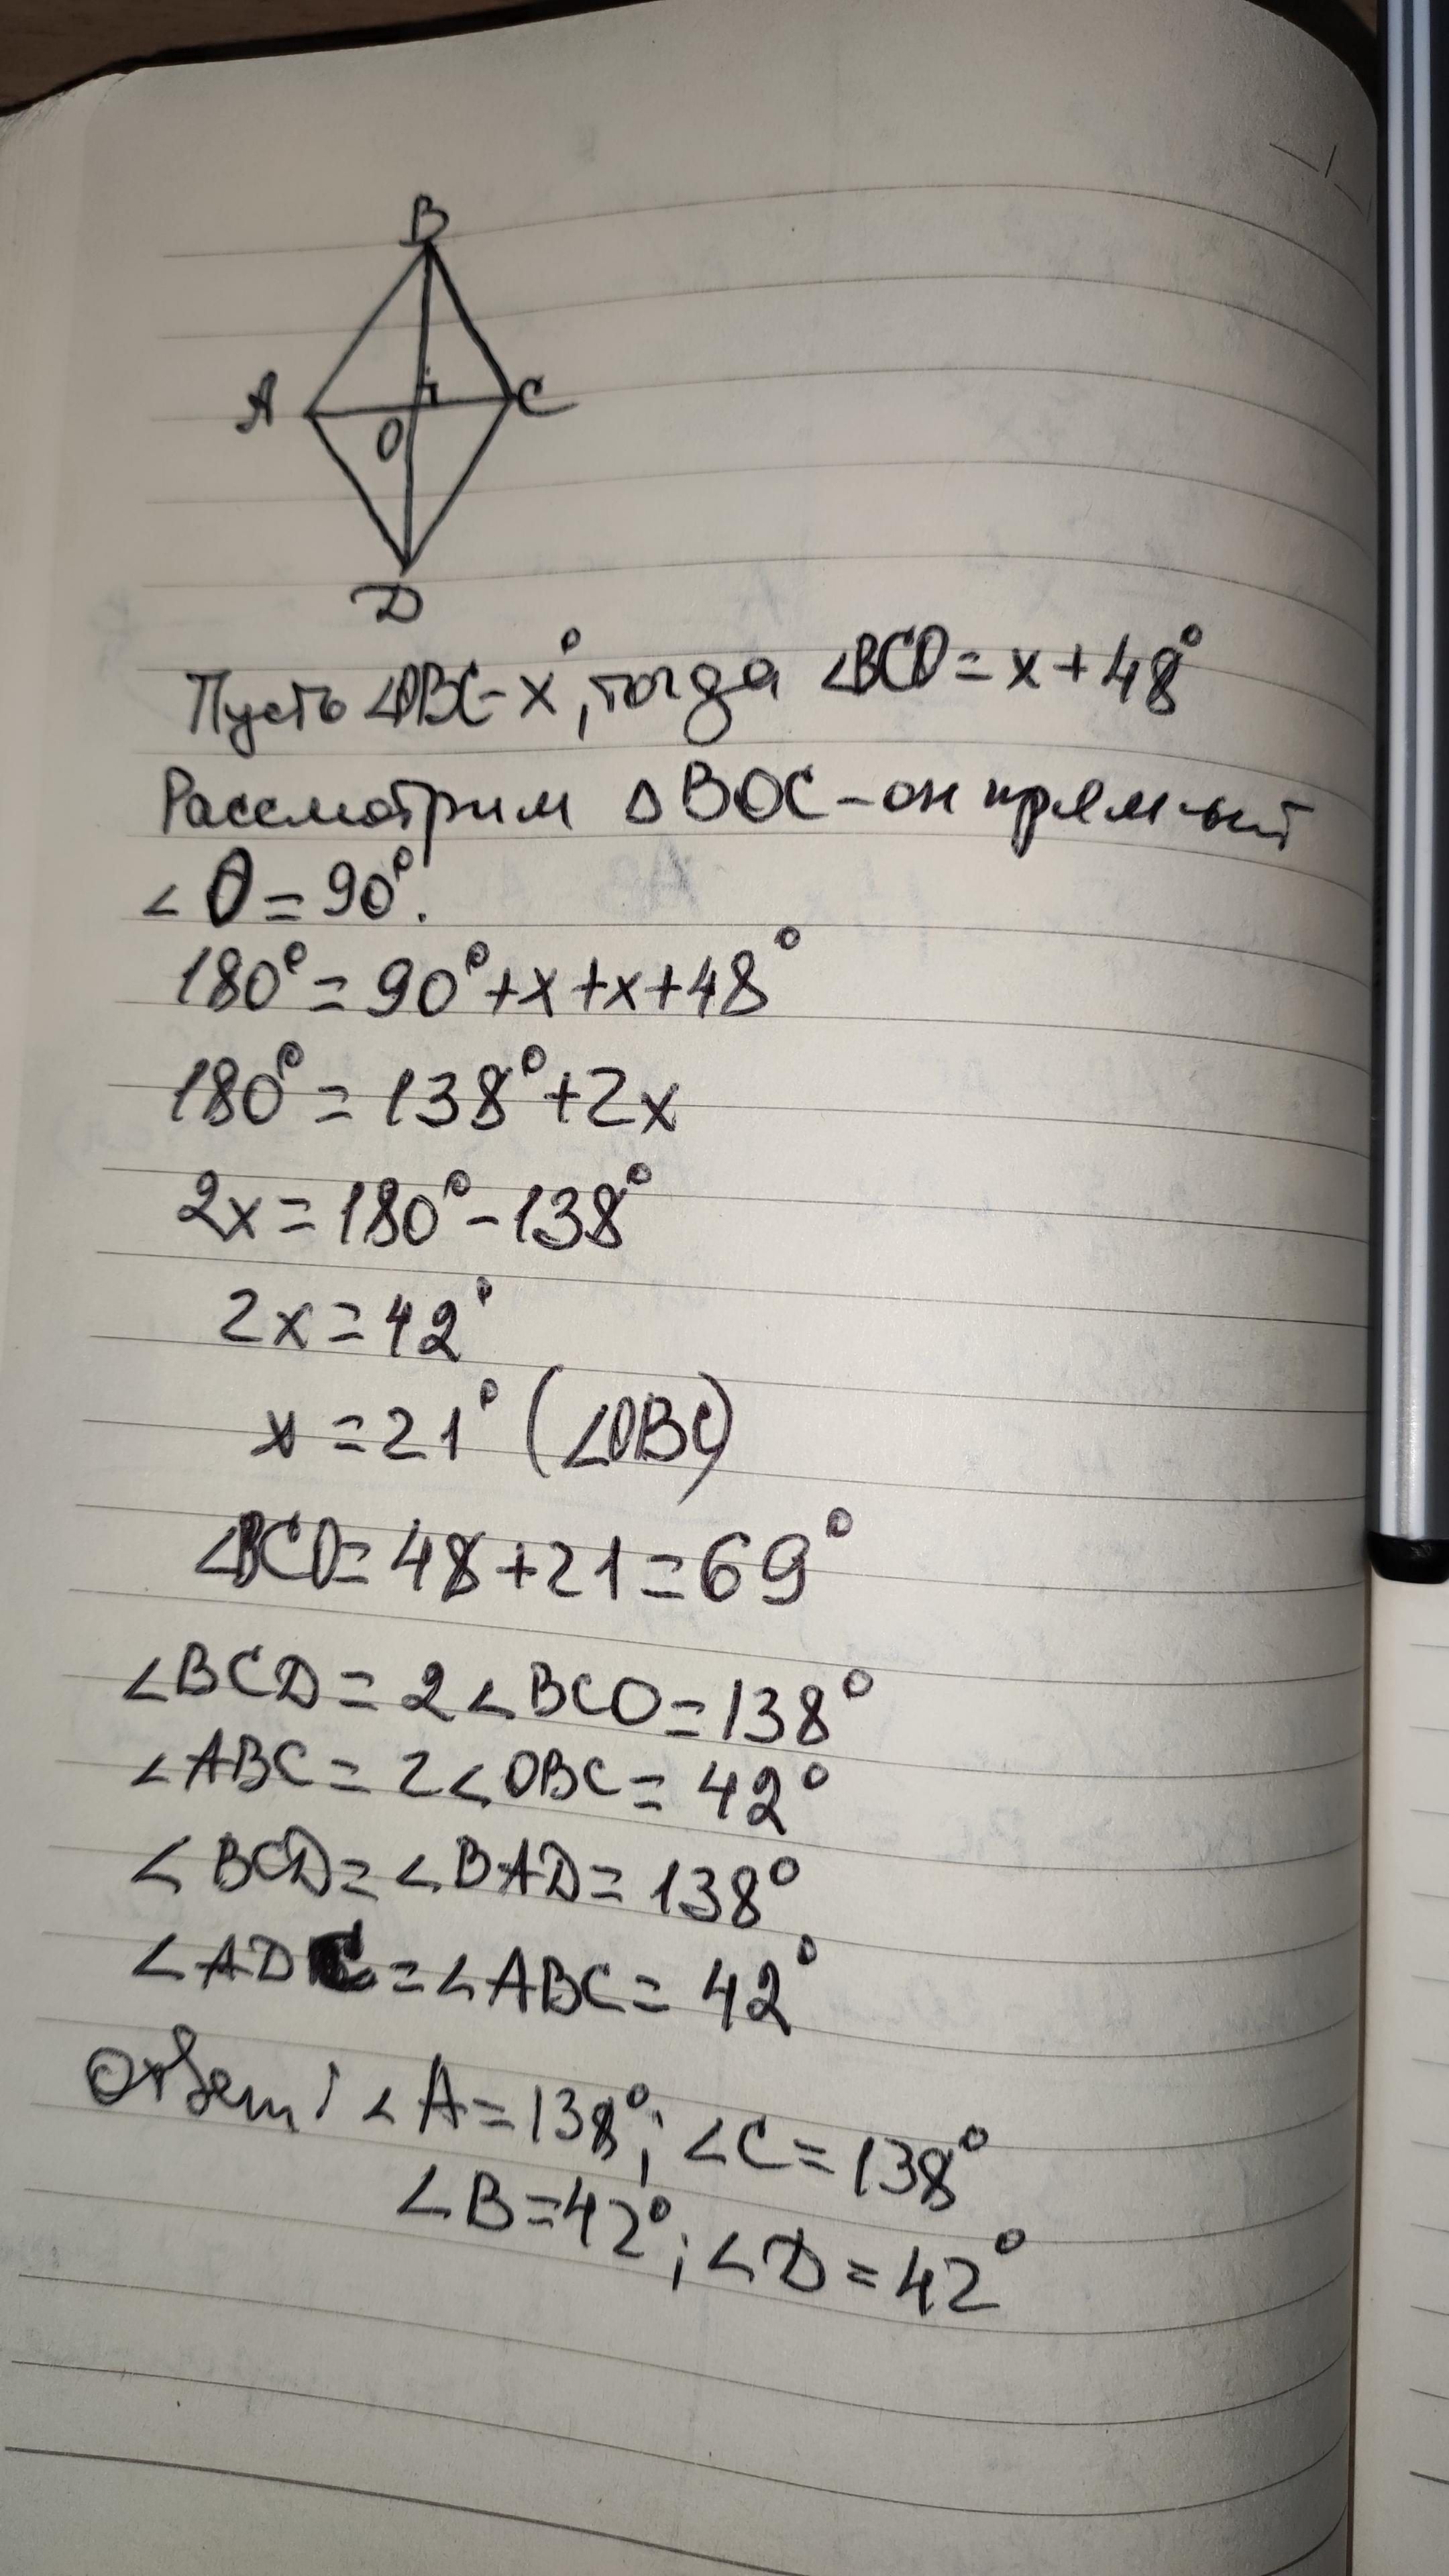 B
A
C
O
D
Пусть ∠OBC - x°, тогда ∠BCO = x + 48°
Рассмотрим △BOC - он прямый
∠O = 90°.
180° = 90° + x + x + 48°
180° = 138° + 2x
2x = 180° - 138°
2x = 42°
x = 21° (∠OBC)
∠BCO = 48 + 21 = 69°
∠BCD = 2∠BCO = 138°
∠ABC = 2∠OBC = 42°
∠BCD = ∠BAD = 138°
∠ADC = ∠ABC = 42°
Ответ: ∠A = 138°; ∠C = 138°
∠B = 42°; ∠D = 42°